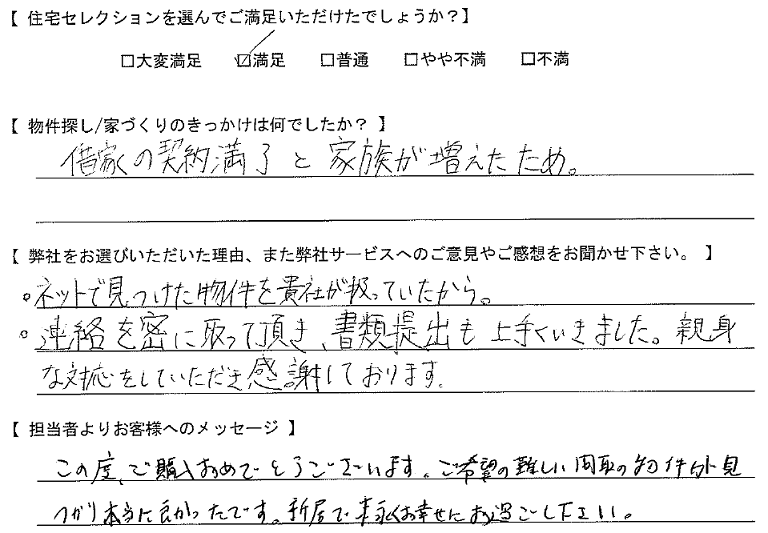 【 住宅セレクションを選んでご満足いただけたでしょうか？】
□大変満足 ☑満足 □普通 □やや不満 □不満
【 物件探し/家づくりのきっかけは何でしたか？ 】
借家の契約満了と家族が増えたため。
【 弊社をお選びいただいた理由、また弊社サービスへのご意見やご感想をお聞かせ下さい。 】
。ネットで見つけた物件を貴社が扱っていたから。
。連絡を密に取って頂き、書類提出も上手くいきました。親身
な対応をしていただき感謝しております。
【 担当者よりお客様へのメッセージ 】
この度、ご購入おめでとうございます。ご希望の難しい間取の物件が見
つかり本当に良かったです。新居で末永くお幸せにお過ごし下さい。